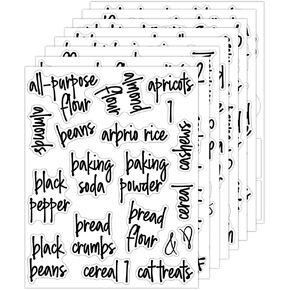 all-purpose
flour
almond
flour
apricots
1
almonds
beans
arbrio rice
cashews
baking
soda
baking
powder
black
pepper
cereal
bread
crumbs
bread
flour
&
black
beans
cereal 1
cat treats